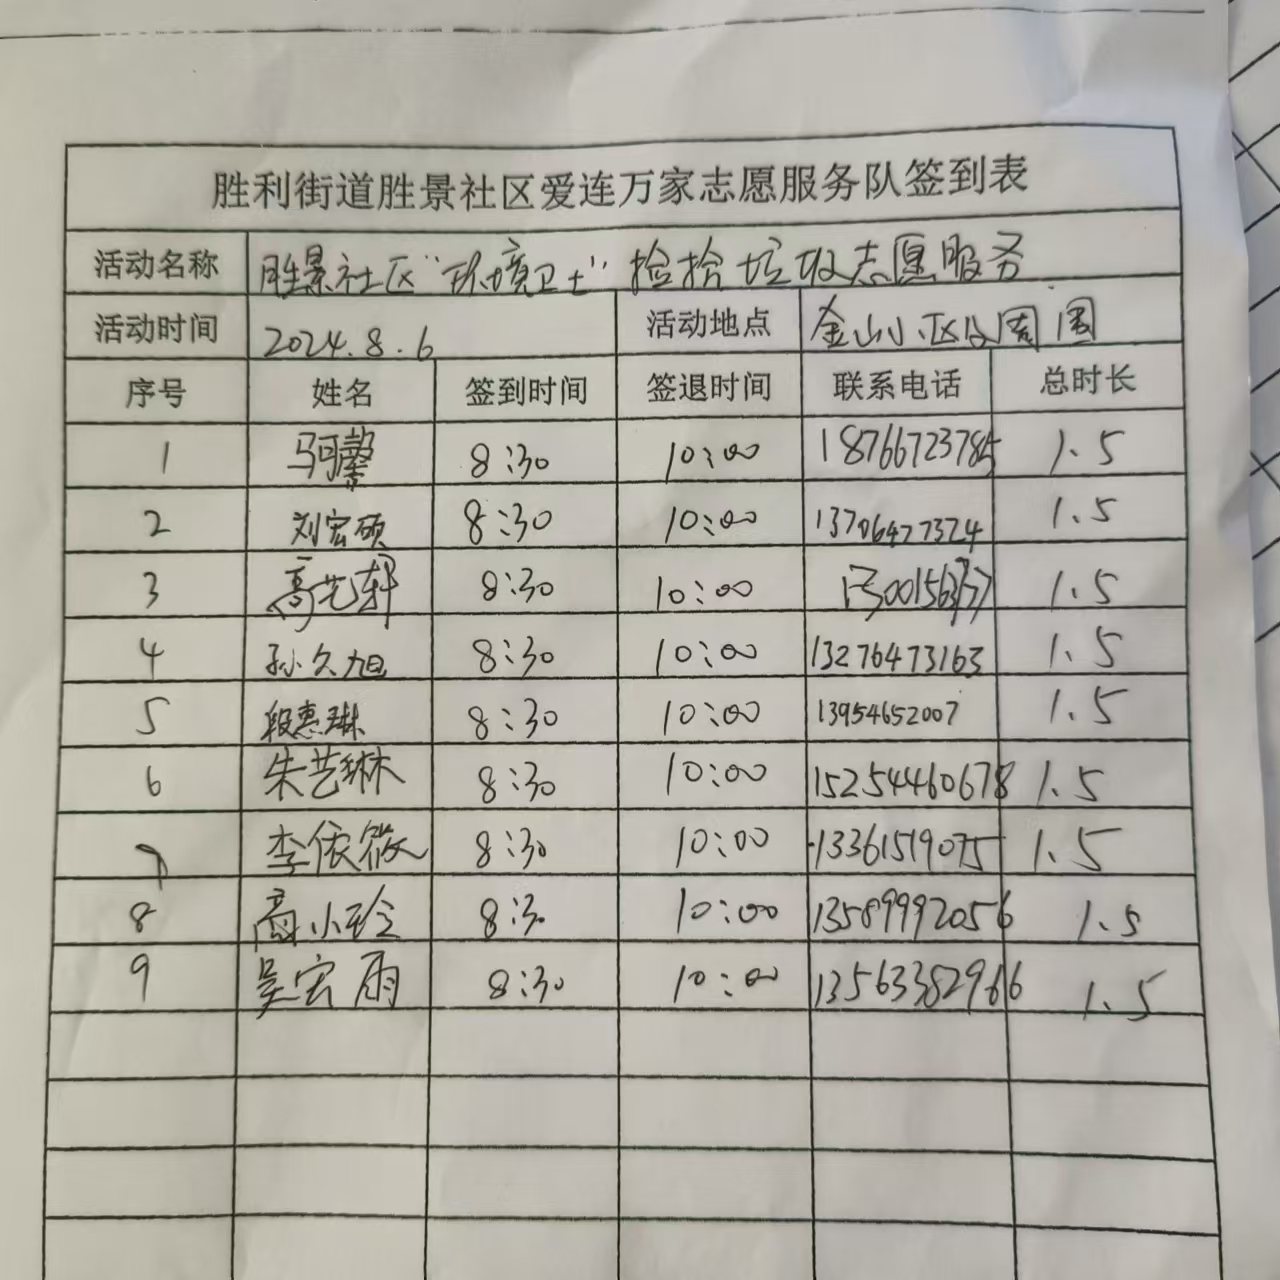 胜利街道胜景社区爱连万家志愿服务队签到表
活动名称 胜景社区“环境卫士”捡拾垃圾志愿服务
活动时间 2024.8.6 活动地点 金山小区及周围
序号 姓名 签到时间 签退时间 联系电话 总时长
1 马可馨 8:30 10:00 1.5
2 刘宏硕 8:30 10:00 13706477324 1.5
3 高艺轩 8:30 10:00 1.5
4 孙久旭 8:30 10:00 13276473163 1.5
5 段惠琳 8:30 10:00 13954652007 1.5
6 朱艺琳 8:30 10:00 15254460678 1.5
7 李依筱 8:30 10:00 13361519075 1.5
8 高小玲 8:30 10:00 13589992056 1.5
9 吴宏雨 8:30 10:00 13563382966 1.5